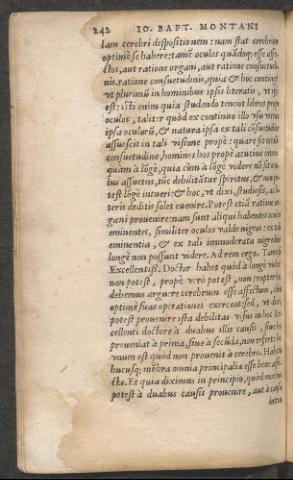 242 IO. BAPT. MONTANI
lam cerebri dispositionem: nam stat cerebrum
optimè se habere: tamẽ oculos quãdoq; esse affe-
ctos, aut ratione organi, aut ratione consuetudi-
nis. ratione consuetudinis, quia & hoc contingit
vt plurimũ in hominibus ipsis literatis, vt ipse
est: isti enim quia studendo tenent libros prope
oculos, taliter quòd ex continuo illo vsu virtus
ipsa ocularis, & natura ipsa ex tali cõsuetudine
assuescit in tali visione propè: quare fit quòd
consuetudine, homines hos propè acutius
quàm à lõgè, quia cùm à lõgè videre nõ sit
bus assuetus, tũc debilitãtur spiritus, & nõ po-
test lõgè intueri: & hoc, vt dixi, studiosis, at li-
teris deditis solet euenire. Potest etiã ratione or-
gani prouenire: nam sunt aliqui habentes oculos
eminentes, similiter oculos valde nigros: ex tali
eminentia, & ex tali immoderata nigredine
longè non possunt videre. Ad rem ergo. Tamen
Excellentiss. Doctor habet quòd à longè videre
non potest, propè verò potest, non propterea
debemus arguere cerebrum esse affectum, cùm
optimè suas operationes exerceat: sed, vt dixi
potest prouenire ista debilitas visus in hoc Ex-
cellenti doctore à duabus illis causis, siue hoc
proueniat à prima, siue à secũda, non refert: hoc
vnum est quòd non prouenit à cerebro. Habemus
hucusq; mẽbra omnia principalia esse bene affe-
cta. Et quia diximus in principio, quòd morbus
potest à duabus causis prouenire, aut à causa
intrin